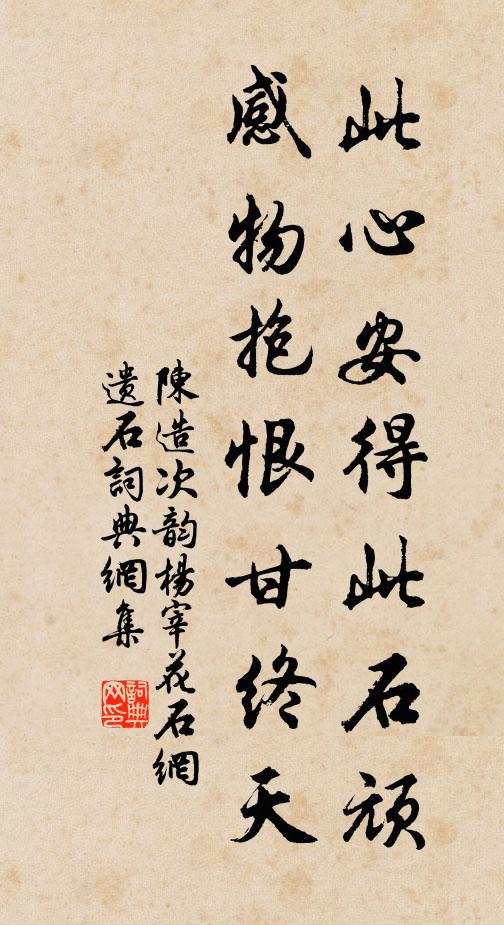 此心安得此石頑
感物抱恨甘終天
陳造次韵楊宰花石網
遺石詞典網集
詞典
网印